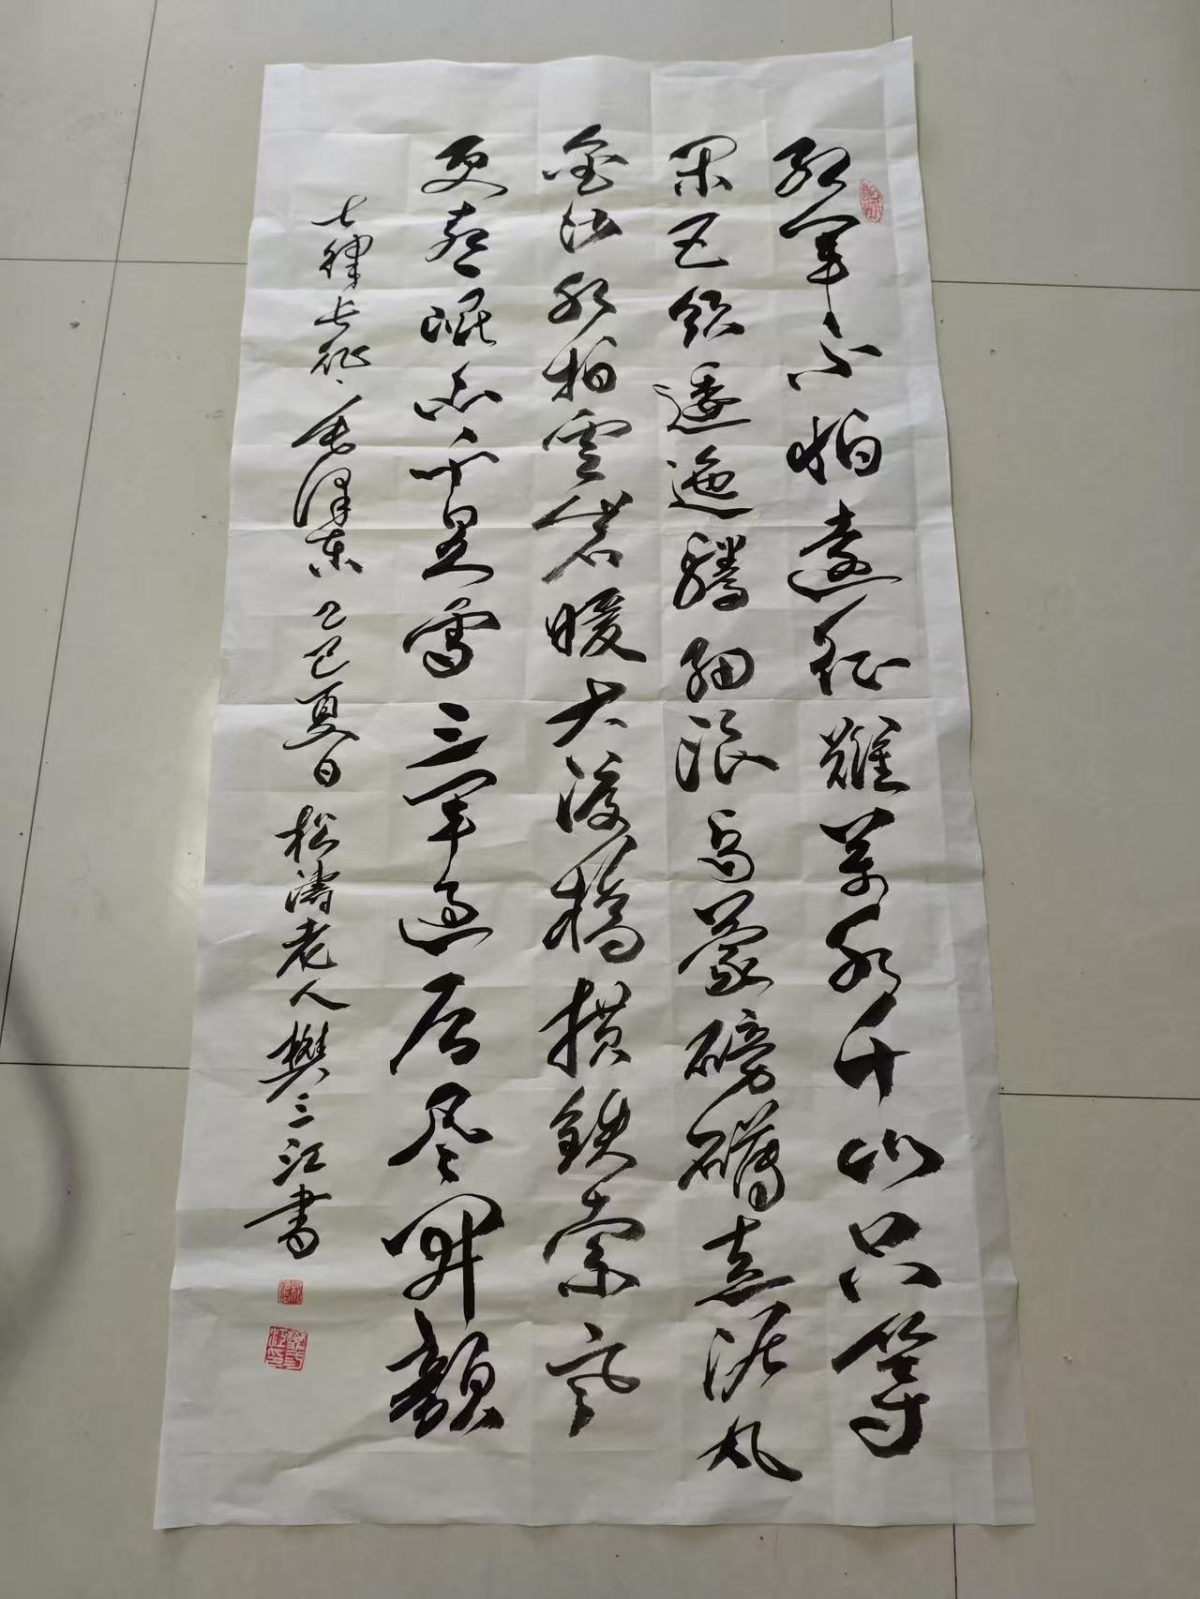 红軍不怕遠征難萬水千山只等
闲五岭逶迤腾细浪烏蒙磅礴走泥丸
金沙水拍雲崖暖大渡橋横铁索寒
更喜岷山千里雪三軍过后尽開颜
七律长征·毛泽东 乙巳夏日 松涛老人樊三江书